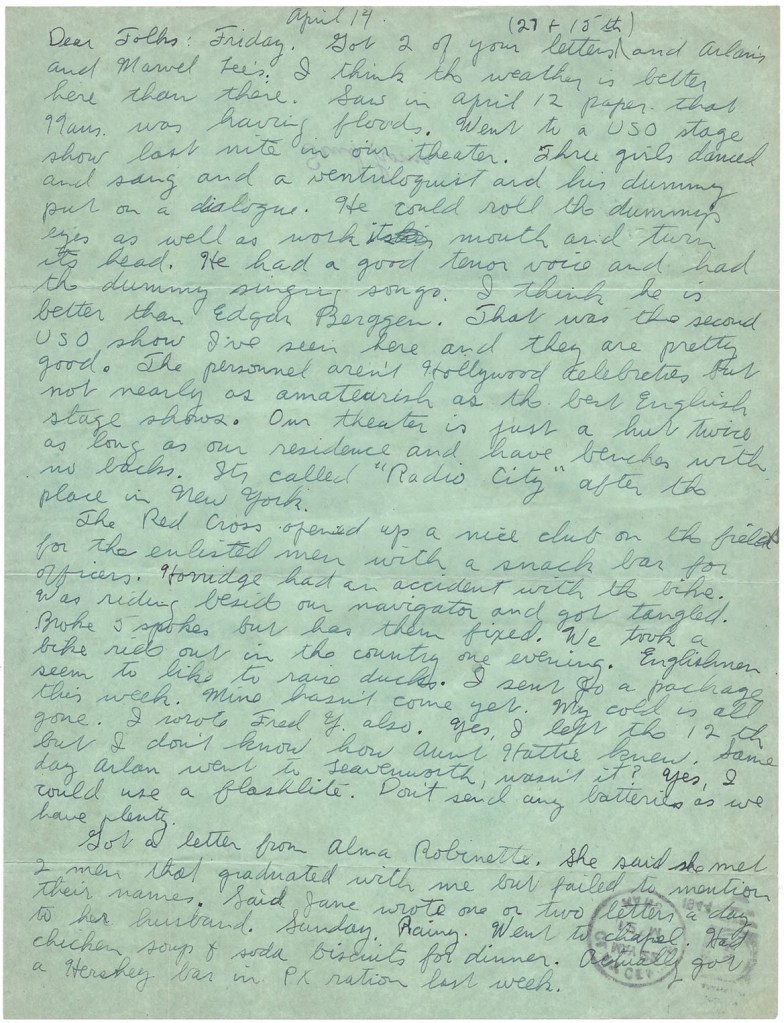 April 14.
(27 + 15th)
Dear Folks: Friday. Got 2 of your letters and Arlan's
and Marvel Lee's. I think the weather is better
here than there. Saw in April 12 paper that
was having floods. Went to a USO stage
show last nite in our theater. Three girls danced
and sang and a ventriloquist and his dummy
put on a dialogue. He could roll the dummys
eyes as well as work its mouth and turn
its head. He had a good tenor voice and had
the dummy singing songs. I think he is
better than Edgar Berggen. That was the second
USO show I've seen here and they are pretty
good. The personnel aren't Hollywood celebreties but
not nearly as amateurish as the best English
stage shows. Our theater is just a hut twice
as long as our residence and have benches with
no backs. Its called "Radio City" after the
place in New York.
The Red Cross opened up a nice club on the field
for the enlisted men with a snack bar for
officers. Horridge had an accident with the bike.
Was riding beside our navigator and got tangled.
Broke 5 spokes but has them fixed. We took a
bike ride out in the country one evening. Englishmen
seem to like to raise ducks. I sent for a package
this week. Mine hasn't come yet. My cold is all
gone. I wrote Fred Y. also. Yes, I left the 12th
but I don't know how Aunt Hattie knew. Same
day Arlan went to Leavenworth, wasn't it? Yes, I
could use a flashlite. Don't send any batteries as we
have plenty.
Got a letter from Alma Robinette. She said she met
2 men that graduated with me but failed to mention
their names. Said Jane wrote one or two letters a day
to her husband. Sunday. Rainy. Went to chapel. Had
chicken soup & soda biscuits for dinner. Actually got
a Hershey bar in PX ration last week.